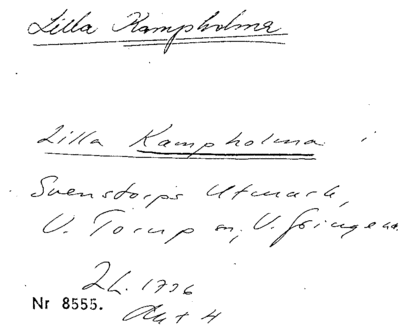 Lilla Kampholma
Lilla Kampholma i
Svenstorps Utmark,
V. Torup sn, V. Göinge hd.
Lh. 1776
Akt 4
Nr 8555.